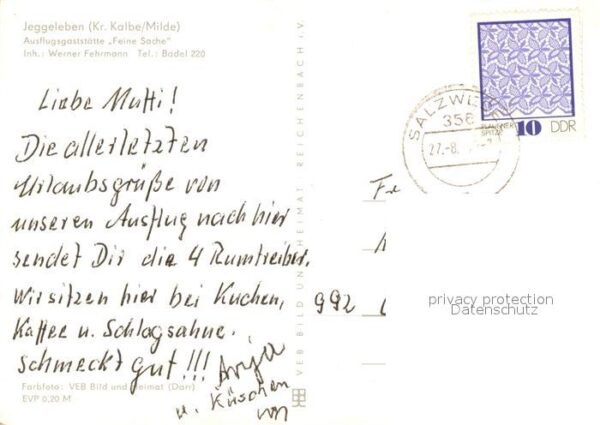 Jeggeleben (Kr. Kalbe/Milde)
Ausflugsgaststätte „Feine Sache"
Inh.: Werner Fehrmann Tel.: Badel 220
Liebe Mutti!
Die allerletzten
Urlaubsgrüße von
unseren Ausflug nach hier
sendet Dir die 4 Rumtreiber.
Wir sitzen hier bei Kuchen,
Kaffee u. Schlagsahne.
Schmeckt gut!!!
u. Küsschen
von
Farbfoto: VEB Bild und Heimat (Darr)
EVP 0,20 M
VEB BILD UND HEIMAT REICHENBACH i. V.
PLAUENER
SPITZE
10 DDR
SALZWEDEL
356
27.-8.
992
privacy protection
Datenschutz